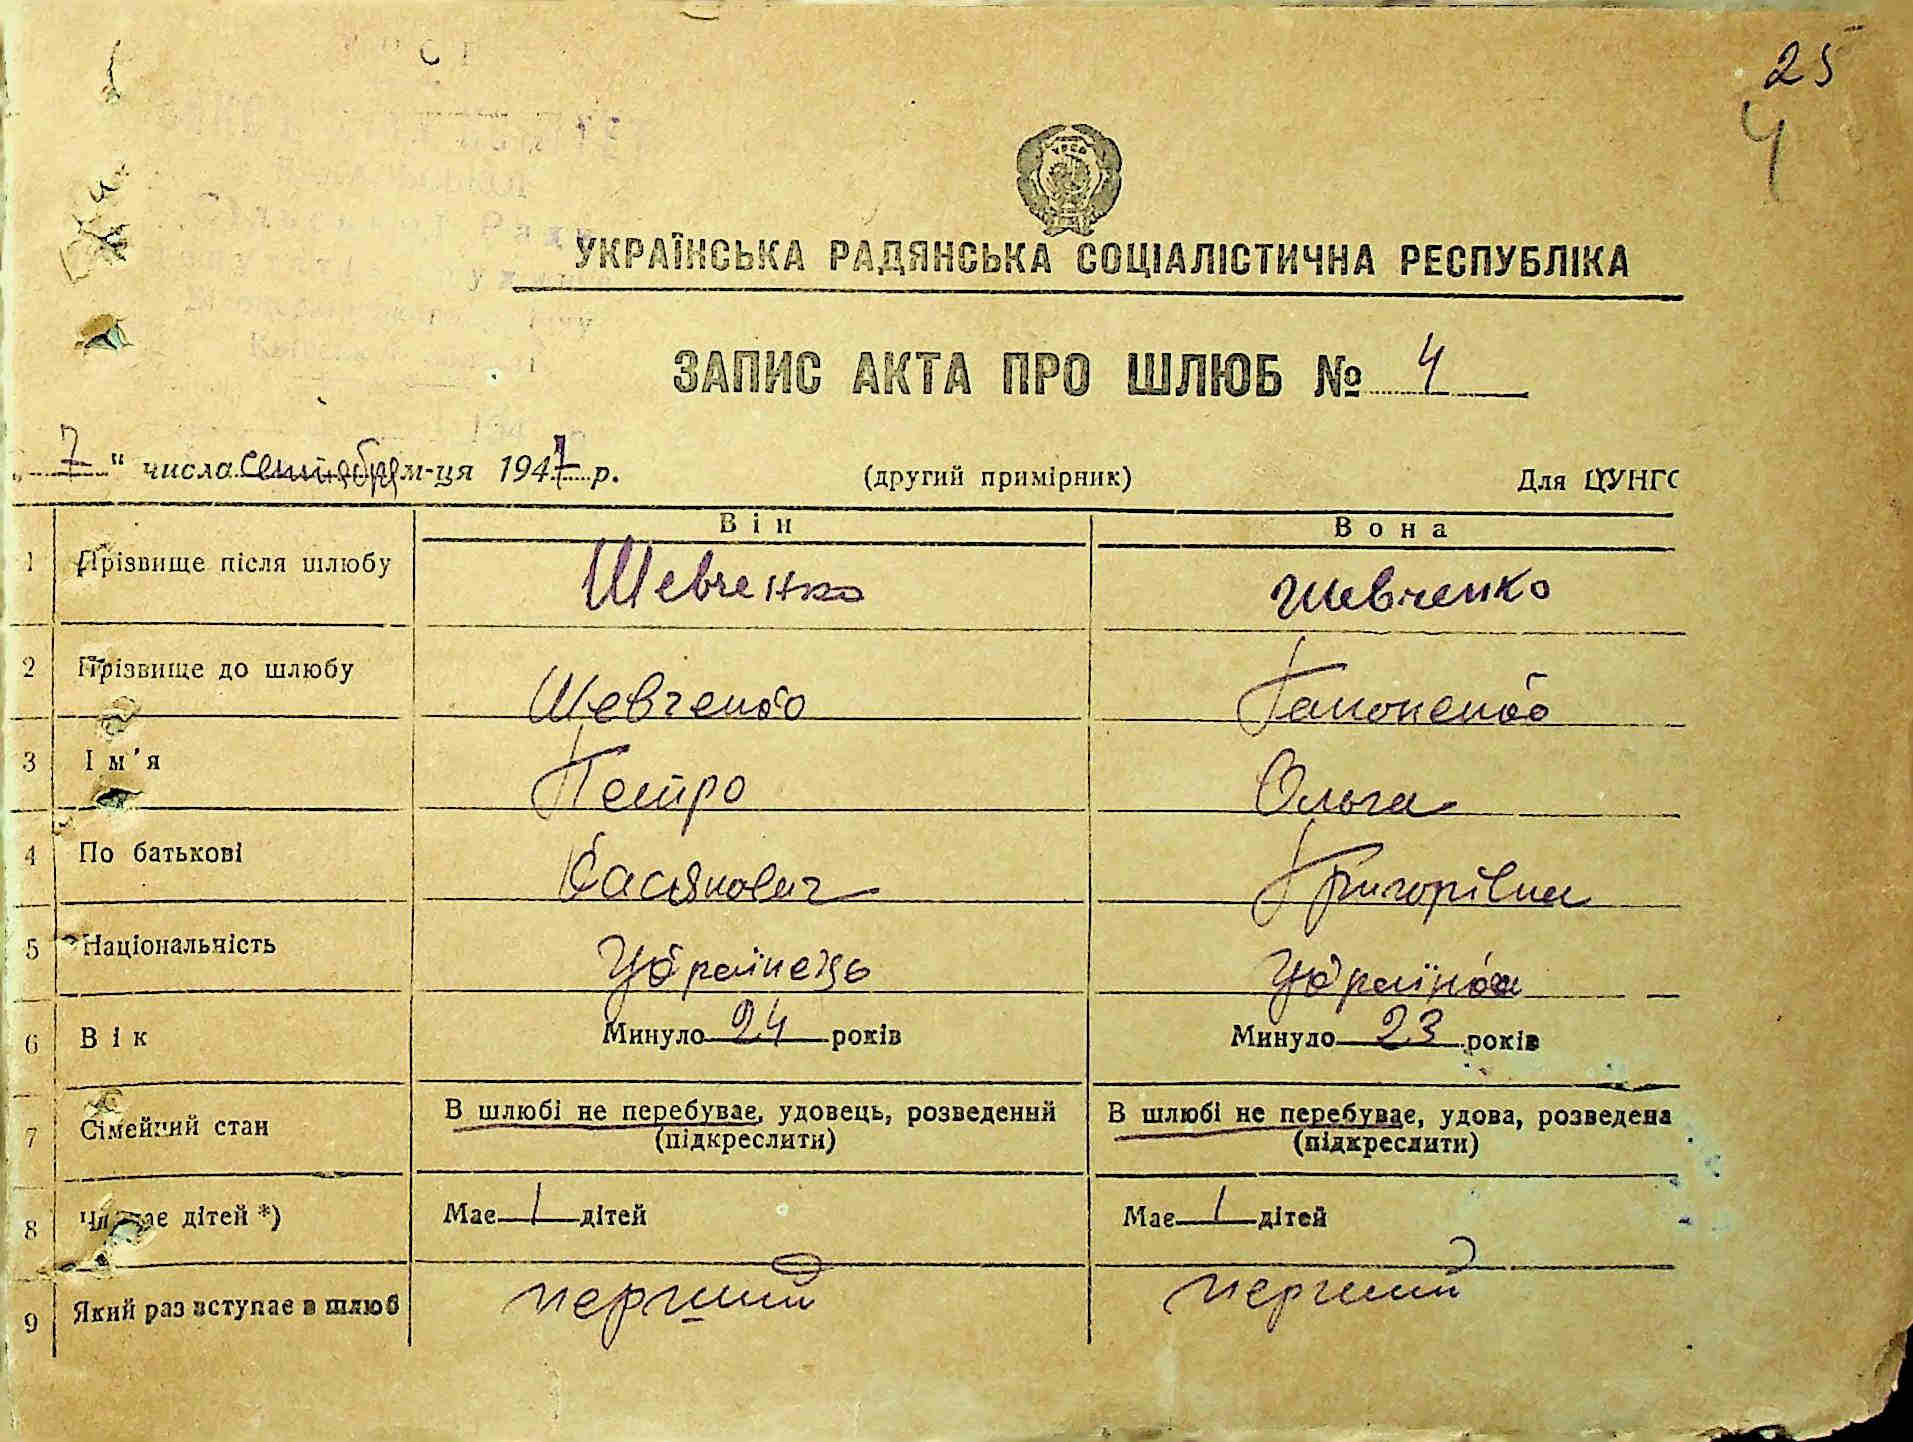 25
4
УКРАЇНСЬКА РАДЯНСЬКА СОЦІАЛІСТИЧНА РЕСПУБЛІКА
ЗАПИС АКТА ПРО ШЛЮБ № 4
„7“ числа сентября м-ця 1947 р. (другий примірник) Для ЦУНГО
Він Вона
1 Прізвище після шлюбу Шевченко Шевченко
2 Прізвище до шлюбу Шевченко Гапоненко
3 Ім'я Петро Ольга
4 По батькові Касянович Григорівна
5 Національність Українець Українка
6 Вік Минуло 24 років Минуло 23 років
7 Сімейний стан В шлюбі не перебуває, удовець, розведений В шлюбі не перебуває, удова, розведена
(підкреслити) (підкреслити)
8 Чи має дітей *) Має 1 дітей Має 1 дітей
9 Який раз вступає в шлюб перший перший